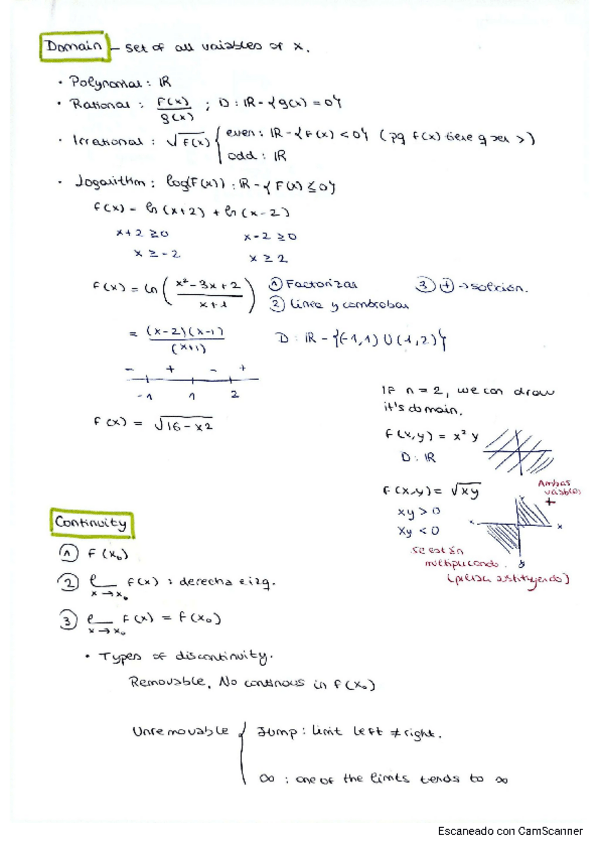 Domain - set of all vaiables of x.
· Polynomial: ℝ
· Rational: F(x)/g(x) ; D: ℝ - {g(x) = 0}
· Irrational: √F(x) { even: ℝ - {F(x) < 0} (pq f(x) tiene q ser >)
odd: ℝ
· Logarithm: log(F(x)): ℝ - {F(x) ≤ 0}
f(x) = ln(x+2) + ln(x-2)
x+2 ≥ 0 x-2 ≥ 0
x ≥ -2 x ≥ 2
f(x) = ln( x²-3x+2 / x+1 ) ① Factorizar ③ ⊕ → solución.
② Linea y combrobar
= (x-2)(x-1) / (x+1) D: ℝ - {(-1,1) ∪ (1,2)}
- + - +
-1 1 2
f(x) = √16-x2
If n = 2, we can draw
it's domain.
f(x,y) = x² y
D: ℝ
f(x,y) = √xy
Ambas
variables
+
xy > 0
xy < 0
x
se están
multiplicando.
Continuity
① F(x₀)
② ℓ x→x₀ f(x): derecha e izq.
③ ℓ x→x₀ f(x) = f(x₀)
· Types of discontinuity.
Removable. No continous in f(x₀)
Unremovable { Jump: limit left ≠ right.
∞: one of the limits tends to ∞
Escaneado con CamScanner